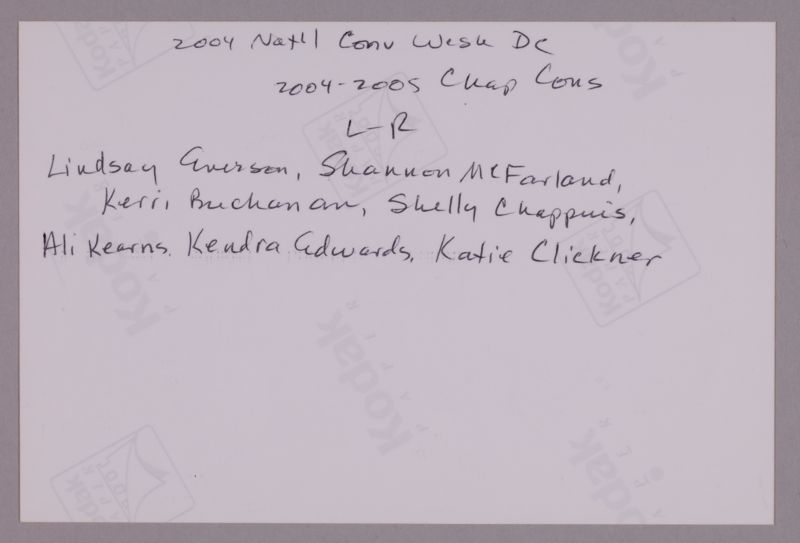 2004 Nat'l Conv Wash DC
2004-2005 Chap Cons
L-R
Lindsay Everson, Shannon McFarland,
Kerri Buchanan, Shelly Chappuis,
Ali Kearns, Kendra Edwards, Katie Clickner
Kodak
PAPER
Kodak
PAPER
Kodak
PAPER
Kodak